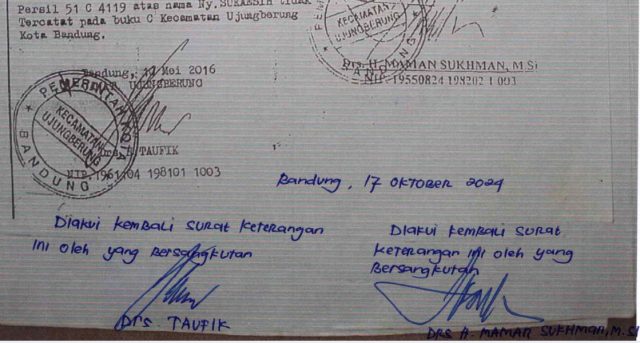 Persil 51 C 4119 atas nama Ny.SUKAESIH tidak
Tercatat pada buku C Kecamatan Ujungberung
Kota Bandung.
KECAMATAN
UJUNGBERUNG
BANDUNG
Drs. H. MAMAN SUKHMAN, M.Si
NIP. 19550824 198202 1 003
Bandung, Mei 2016
UJUNGBERUNG
PEMERINTAH KOTA
KECAMATAN
UJUNGBERUNG
BANDUNG
TAUFIK
198101 1003
Bandung, 17 OKTOBER 2024
Diakui kembali surat keterangan
ini oleh yang Bersangkutan
Drs TAUFIK
Diakui kembali surat
keterangan ini oleh yang
Bersangkutan
DRS H. MAMAN SUKHMAN, M.Si